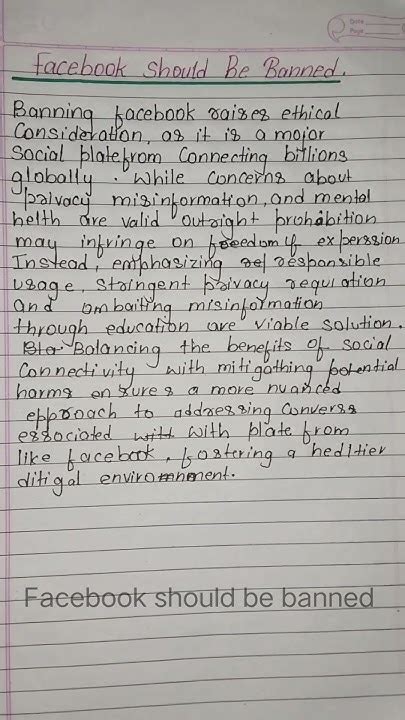 Date
Page
Facebook Should Be Banned.
Banning facebook raises ethical
Consideration, as it is a major
Social platefrom Connecting billions
globally. While Concerns about
privacy misinformation, and mental
helth are valid outright prohibition
may infringe on freedom of experssion
Instead, emphasizing responsible
usage, Stringent privacy regulation
and ombaiting misinformation
through education are viable solution.
Balancing the benefits of Social
Connectivity with mitigathing potential
harms ensures a more nuanced
epproach to addressing Converss
essociated with plate from
like facebook, fostering a hedltier
ditigal environment.
Facebook should be banned